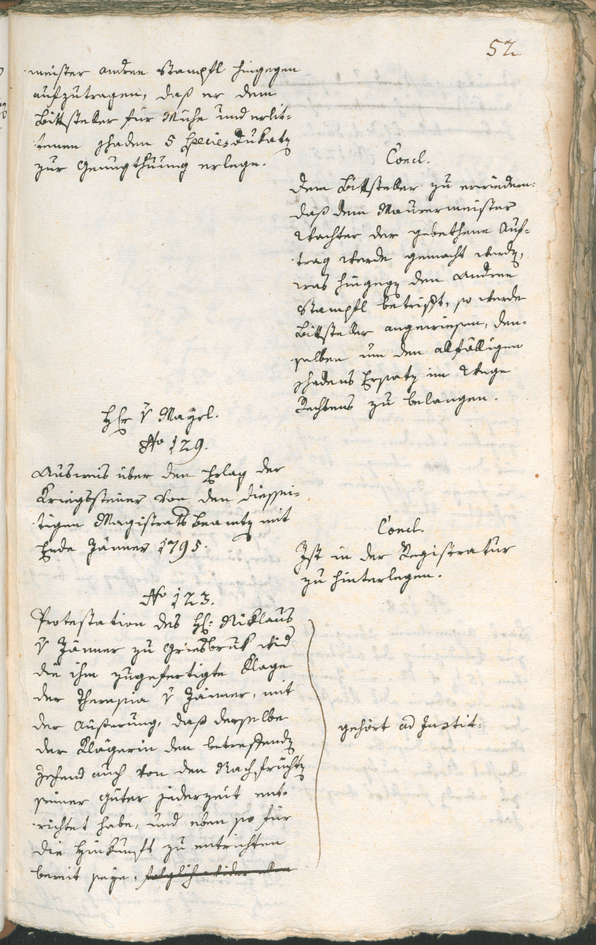 52.
meister Andree Stampfl hingegen
aufzutragen, daß er dem
Bittsteller für Mühe und erlit-
tenen schaden 5 species Dukatn
zur Genugthuung erlege.
Concl.
Dem Bittsteller zu erwiedern:
daß dem Maurermeister
Wachter der gebethene Auf-
trag werde gemacht werdn,
was hingegn den Andree
Stampfl betrift, so werde
Bittsteller angewiesen, den-
selben um den allfälligen
schadens Ersatz im Wege
Rechtens zu belangen.
H: v Mayrl.
No 129.
Ausweis über den Erlag der
Kriegssteuer von den diessei-
tigen Magistrats beamtn mit
Ende Jänner 1795.
Concl.
Ist in der Registratur
zu hinterlegen.
No 123.
Protestation des H: Niklaus
v Jänner zu Griesbruk wid
die ihm zugefertigte Klage
der Theresia v Jänner, mit
der Äußerung, daß derselbe
der Klägerin den betreffendn
Zehend auch von den Nachfrüchtn
seiner Güter jederzeit ent-
richtet habe, und eben so für
die Hinkunft zu entrichten
bereit seye, folglich wider den
gehört ad Justit: